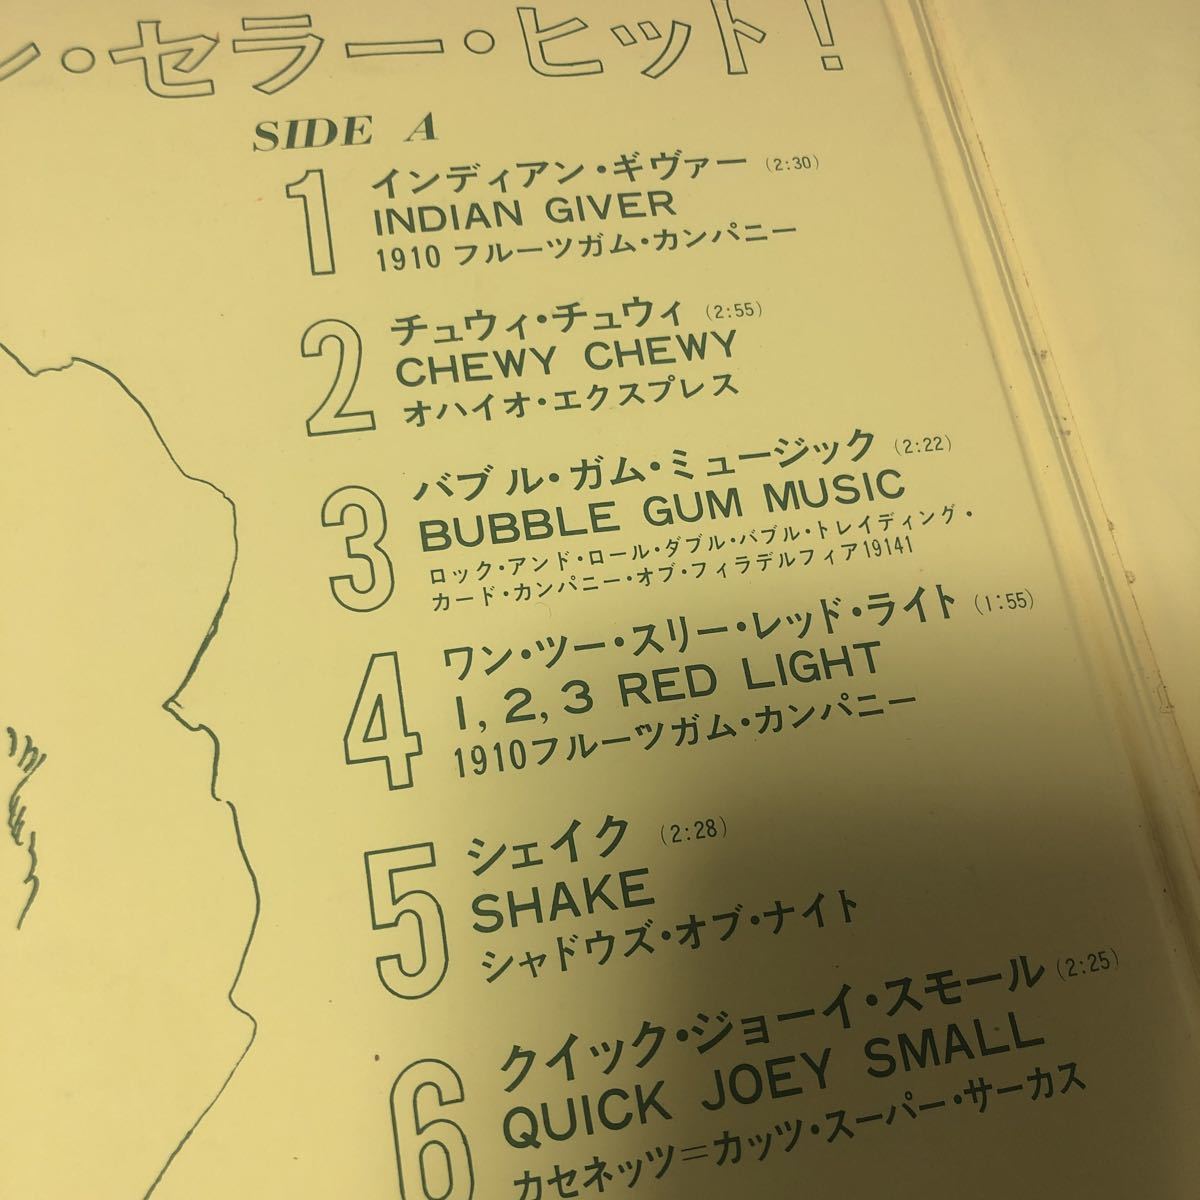 ン・セラー・ヒット!
SIDE A
1 インディアン・ギヴァー (2:30)
INDIAN GIVER
1910 フルーツガム・カンパニー
2 チュウィ・チュウィ (2:55)
CHEWY CHEWY
オハイオ・エクスプレス
3 バブル・ガム・ミュージック (2:22)
BUBBLE GUM MUSIC
ロック・アンド・ロール・ダブル・バブル・トレイディング・
カード・カンパニー・オブ・フィラデルフィア19141
4 ワン・ツー・スリー・レッド・ライト (1:55)
1, 2, 3 RED LIGHT
1910フルーツガム・カンパニー
5 シェイク (2:28)
SHAKE
シャドウズ・オブ・ナイト
6 クイック・ジョーイ・スモール (2:25)
QUICK JOEY SMALL
カセネッツ=カッツ・スーパー・サーカス